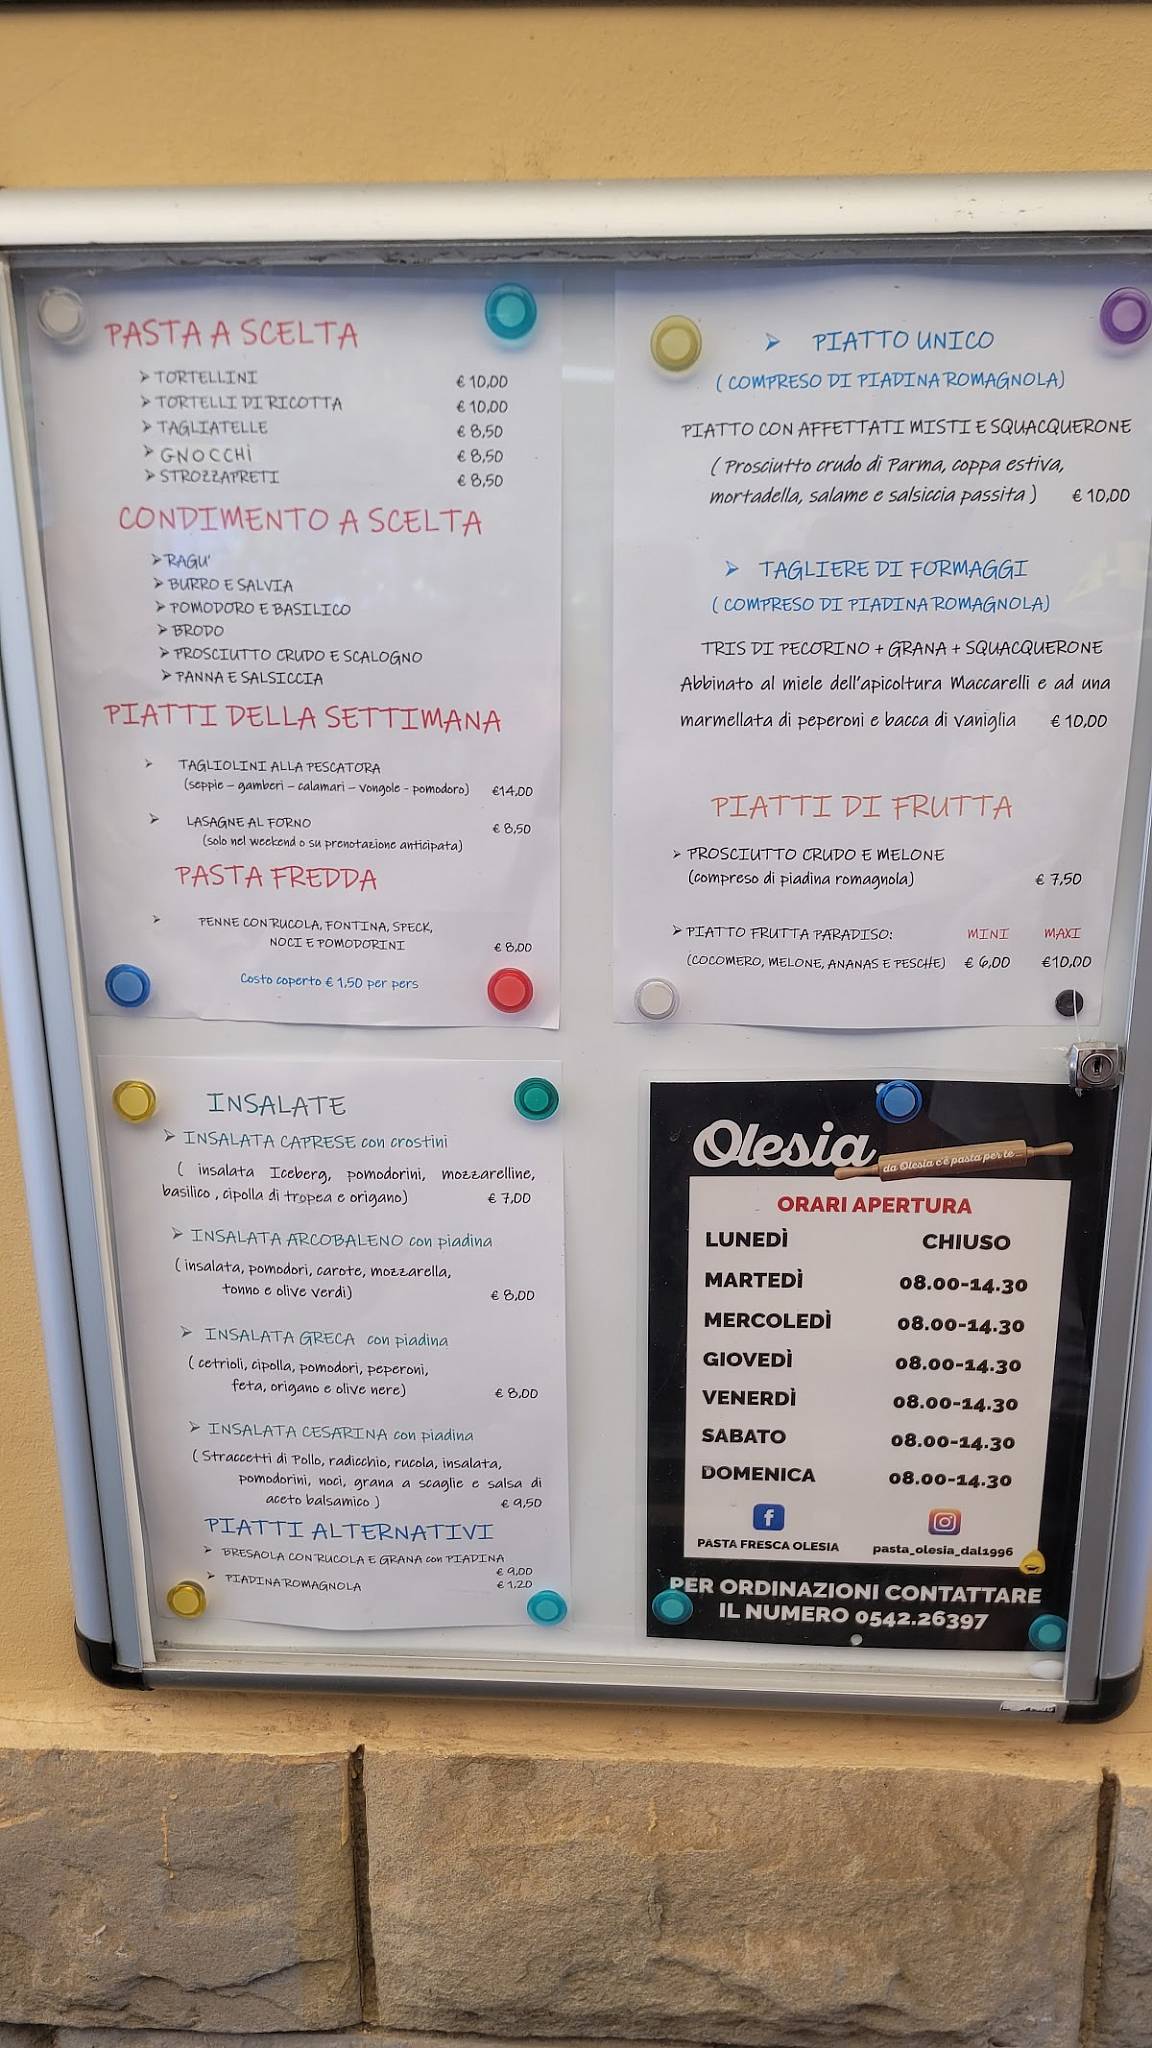 PASTA A SCELTA
➤ TORTELLINI € 10,00
➤ TORTELLI DI RICOTTA € 10,00
➤ TAGLIATELLE € 8,50
➤ GNOCCHÌ € 8,50
➤ STROZZAPRETI € 8,50
CONDIMENTO A SCELTA
➤ RAGU'
➤ BURRO E SALVIA
➤ POMODORO E BASILICO
➤ BRODO
➤ PROSCIUTTO CRUDO E SCALOGNO
➤ PANNA E SALSICCIA
PIATTI DELLA SETTIMANA
➤ TAGLIOLINI ALLA PESCATORA
(seppie – gamberi – calamari – vongole - pomodoro) €14,00
➤ LASAGNE AL FORNO € 8,50
(solo nel weekend o su prenotazione anticipata)
PASTA FREDDA
➤ PENNE CON RUCOLA, FONTINA, SPECK,
NOCI E POMODORINI € 8,00
Costo coperto € 1,50 per pers
➤ PIATTO UNICO
( COMPRESO DI PIADINA ROMAGNOLA)
PIATTO CON AFFETTATI MISTI E SQUACQUERONE
( Prosciutto crudo di Parma, coppa estiva,
mortadella, salame e salsiccia passita ) € 10,00
➤ TAGLIERE DI FORMAGGI
( COMPRESO DI PIADINA ROMAGNOLA)
TRIS DI PECORINO + GRANA + SQUACQUERONE
Abbinato al miele dell'apicoltura Maccarelli e ad una
marmellata di peperoni e bacca di vaniglia € 10,00
PIATTI DI FRUTTA
➤ PROSCIUTTO CRUDO E MELONE
(compreso di piadina romagnola) € 7,50
➤ PIATTO FRUTTA PARADISO: MINI MAXI
(COCOMERO, MELONE, ANANAS E PESCHE) € 6,00 €10,00
INSALATE
➤ INSALATA CAPRESE con crostini
( insalata Iceberg, pomodorini, mozzarelline,
basilico , cipolla di tropea e origano) € 7,00
➤ INSALATA ARCOBALENO con piadina
( insalata, pomodori, carote, mozzarella,
tonno e olive verdi) € 8,00
➤ INSALATA GRECA con piadina
( cetrioli, cipolla, pomodori, peperoni,
feta, origano e olive nere) € 8,00
➤ INSALATA CESARINA con piadina
( Straccetti di Pollo, radicchio, rucola, insalata,
pomodorini, noci, grana a scaglie e salsa di
aceto balsamico ) € 9,50
PIATTI ALTERNATIVI
➤ BRESAOLA CON RUCOLA E GRANA con PIADINA
€ 9,00
➤ PIADINA ROMAGNOLA € 1,20
Olesia
da Olesia c'è pasta per te...
ORARI APERTURA
LUNEDÌ CHIUSO
MARTEDÌ 08.00-14.30
MERCOLEDÌ 08.00-14.30
GIOVEDÌ 08.00-14.30
VENERDÌ 08.00-14.30
SABATO 08.00-14.30
DOMENICA 08.00-14.30
PASTA FRESCA OLESIA pasta_olesia_dal1996
PER ORDINAZIONI CONTATTARE
IL NUMERO 0542.26397